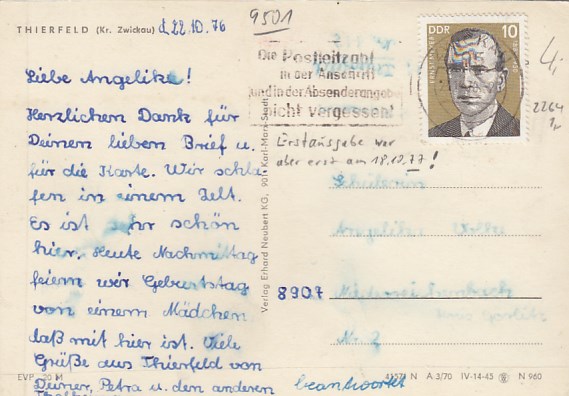 THIERFELD (Kr. Zwickau) d. 22.10.76
Liebe Angelika!
Herzlichen Dank für
Deinen lieben Brief u.
für die Karte. Wir schla-
fen in einem Zelt.
Es ist sehr schön
hier. Heute Nachmittag
feiern wir Geburtstag
von einem Mädchen,
daß mit hier ist. Viele
Grüße aus Thierfeld von
Deiner, Petra u. den anderen
EVP 20 M
Verlag Erhard Neubert KG, 901 Karl-Marx-Stadt
9501
Die Postleitzahl
in der Anschrift
und in der Absenderangabe
nicht vergessen!
DDR 10
2264
Erstausgabe war
aber erst am 18.10.77!
Schülerin
8907
Nr. 2
beantwortet
41571 N A 3/70 IV-14-45 N 960